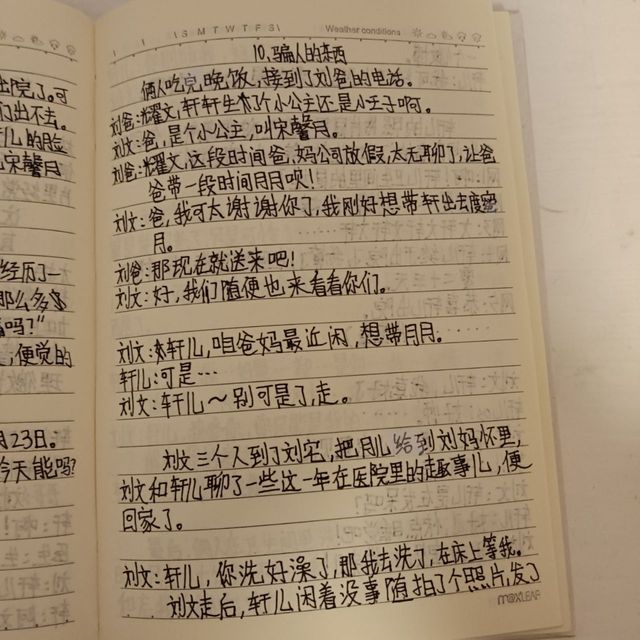 S M T W T F S
Weather conditions
10.骗人的东西
俩人吃完晚饭,接到了刘爸的电话。
刘爸:耀文,轩轩生了个小公主还是小王子啊。
刘文:爸,是个小公主,叫宋馨月。
刘爸:耀文,这段时间爸,妈公司放假,太无聊了,让爸
爸带一段时间月月呗!
刘文:爸,我可太谢谢你了,我刚好想带轩出去度蜜
月。
刘爸:那现在就送来吧!
刘文:好,我们随便也来看看你们。
刘文:轩儿,咱爸妈最近闲,想带月月。
轩儿:可是…
刘文:轩儿~别可是了走。
刘文三个人到了刘宅,把月儿给到刘妈怀里,
刘文和轩儿聊了一些这一年在医院里的趣事儿,便
回家了。
刘文:轩儿,你洗好澡了,那我去洗了,在床上等我。
刘文走后,轩儿闲着没事随拍了个照片,发了
MAXLEAF
出院了。可
们出不去。
儿的脸
宋馨月
经历了一
那么多
吗?”
,便觉的
月23日。
今天能吗?